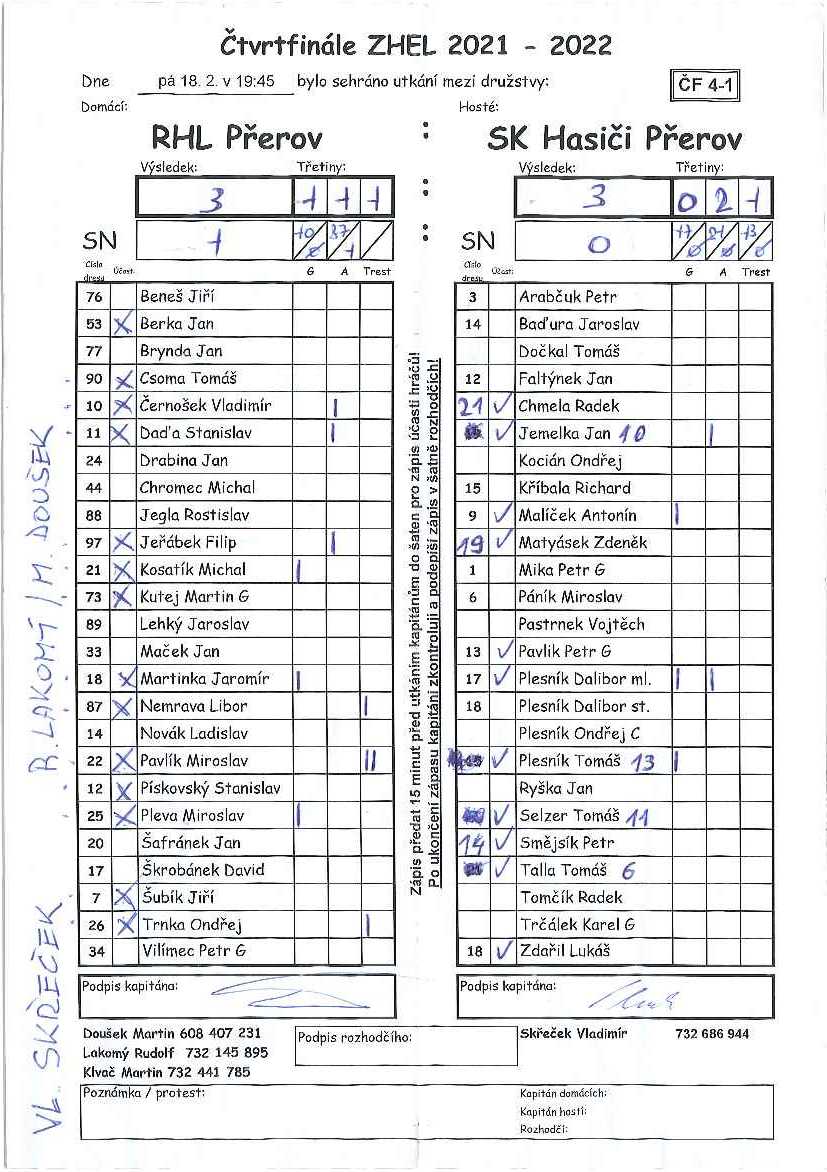 Čtvrtfinále ZHEL 2021 - 2022
Dne pá 18. 2. v 19:45 bylo sehráno utkání mezi družstvy: ČF 4-1
Domácí: Hosté:
RHL Přerov : SK Hasiči Přerov
Výsledek: Třetiny: Výsledek: Třetiny:
3 1 1 1 : 3 0 2 1
SN 1 10/0 87/1 / : SN 0 17/0 21/0 13/0
Číslo dresu Účast: G A Trest Číslo dresu Účast: G A Trest
76 Beneš Jiří 3 Arabčuk Petr
53 X Berka Jan 14 Baďura Jaroslav
77 Brynda Jan Dočkal Tomáš
90 X Csoma Tomáš 12 Faltýnek Jan
10 X Černošek Vladimír | 21 ✓ Chmela Radek
11 X Daďa Stanislav | ✓ Jemelka Jan 10 |
24 Drabina Jan Kocián Ondřej
44 Chromec Michal 15 Kříbala Richard
88 Jegla Rostislav 9 ✓ Malíček Antonín |
97 X Jeřábek Filip | 19 ✓ Matyásek Zdeněk
21 X Kosatík Michal | 1 Mika Petr G
73 X Kutej Martin G 6 Páník Miroslav
89 Lehký Jaroslav Pastrnek Vojtěch
33 Maček Jan 13 ✓ Pavlik Petr G
18 X Martinka Jaromír | 17 ✓ Plesník Dalibor ml. | |
87 X Nemrava Libor | 18 Plesník Dalibor st.
14 Novák Ladislav Plesník Ondřej C
22 X Pavlík Miroslav || ✓ Plesník Tomáš 13 |
12 X Pískovský Stanislav Ryška Jan
25 X Pleva Miroslav | ✓ Selzer Tomáš 11
20 Šafránek Jan 14 ✓ Smějsík Petr
17 Škrobánek David ✓ Talla Tomáš 6
7 X Šubík Jiří Tomčík Radek
26 X Trnka Ondřej | Trčálek Karel G
34 Vilímec Petr G 18 ✓ Zdařil Lukáš
Zápis předat 15 minut před utkáním kapitánům do šaten pro zápis účasti hráčů!
Po ukončení zápasu kapitáni zkontrolují a podepíší zápis v šatně rozhodčích!
VL. SKŘEČEK R. LAKOMÝ / M. DOUŠEK
Podpis kapitána: Podpis kapitána:
Doušek Martin 608 407 231 Podpis rozhodčího: Skřeček Vladimír 732 686 944
Lakomý Rudolf 732 145 895
Klvač Martin 732 441 785
Poznámka / protest: Kapitán domácích:
Kapitán hostí:
Rozhodčí: